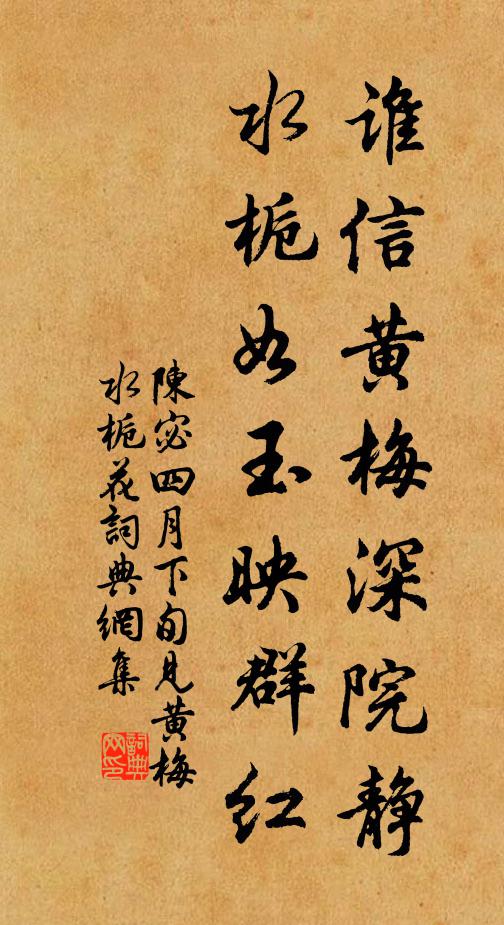 谁信黄梅深院静
水栀如玉映群红
陳宓四月下旬見黄梅
水栀花詞典網集
詞典
网印